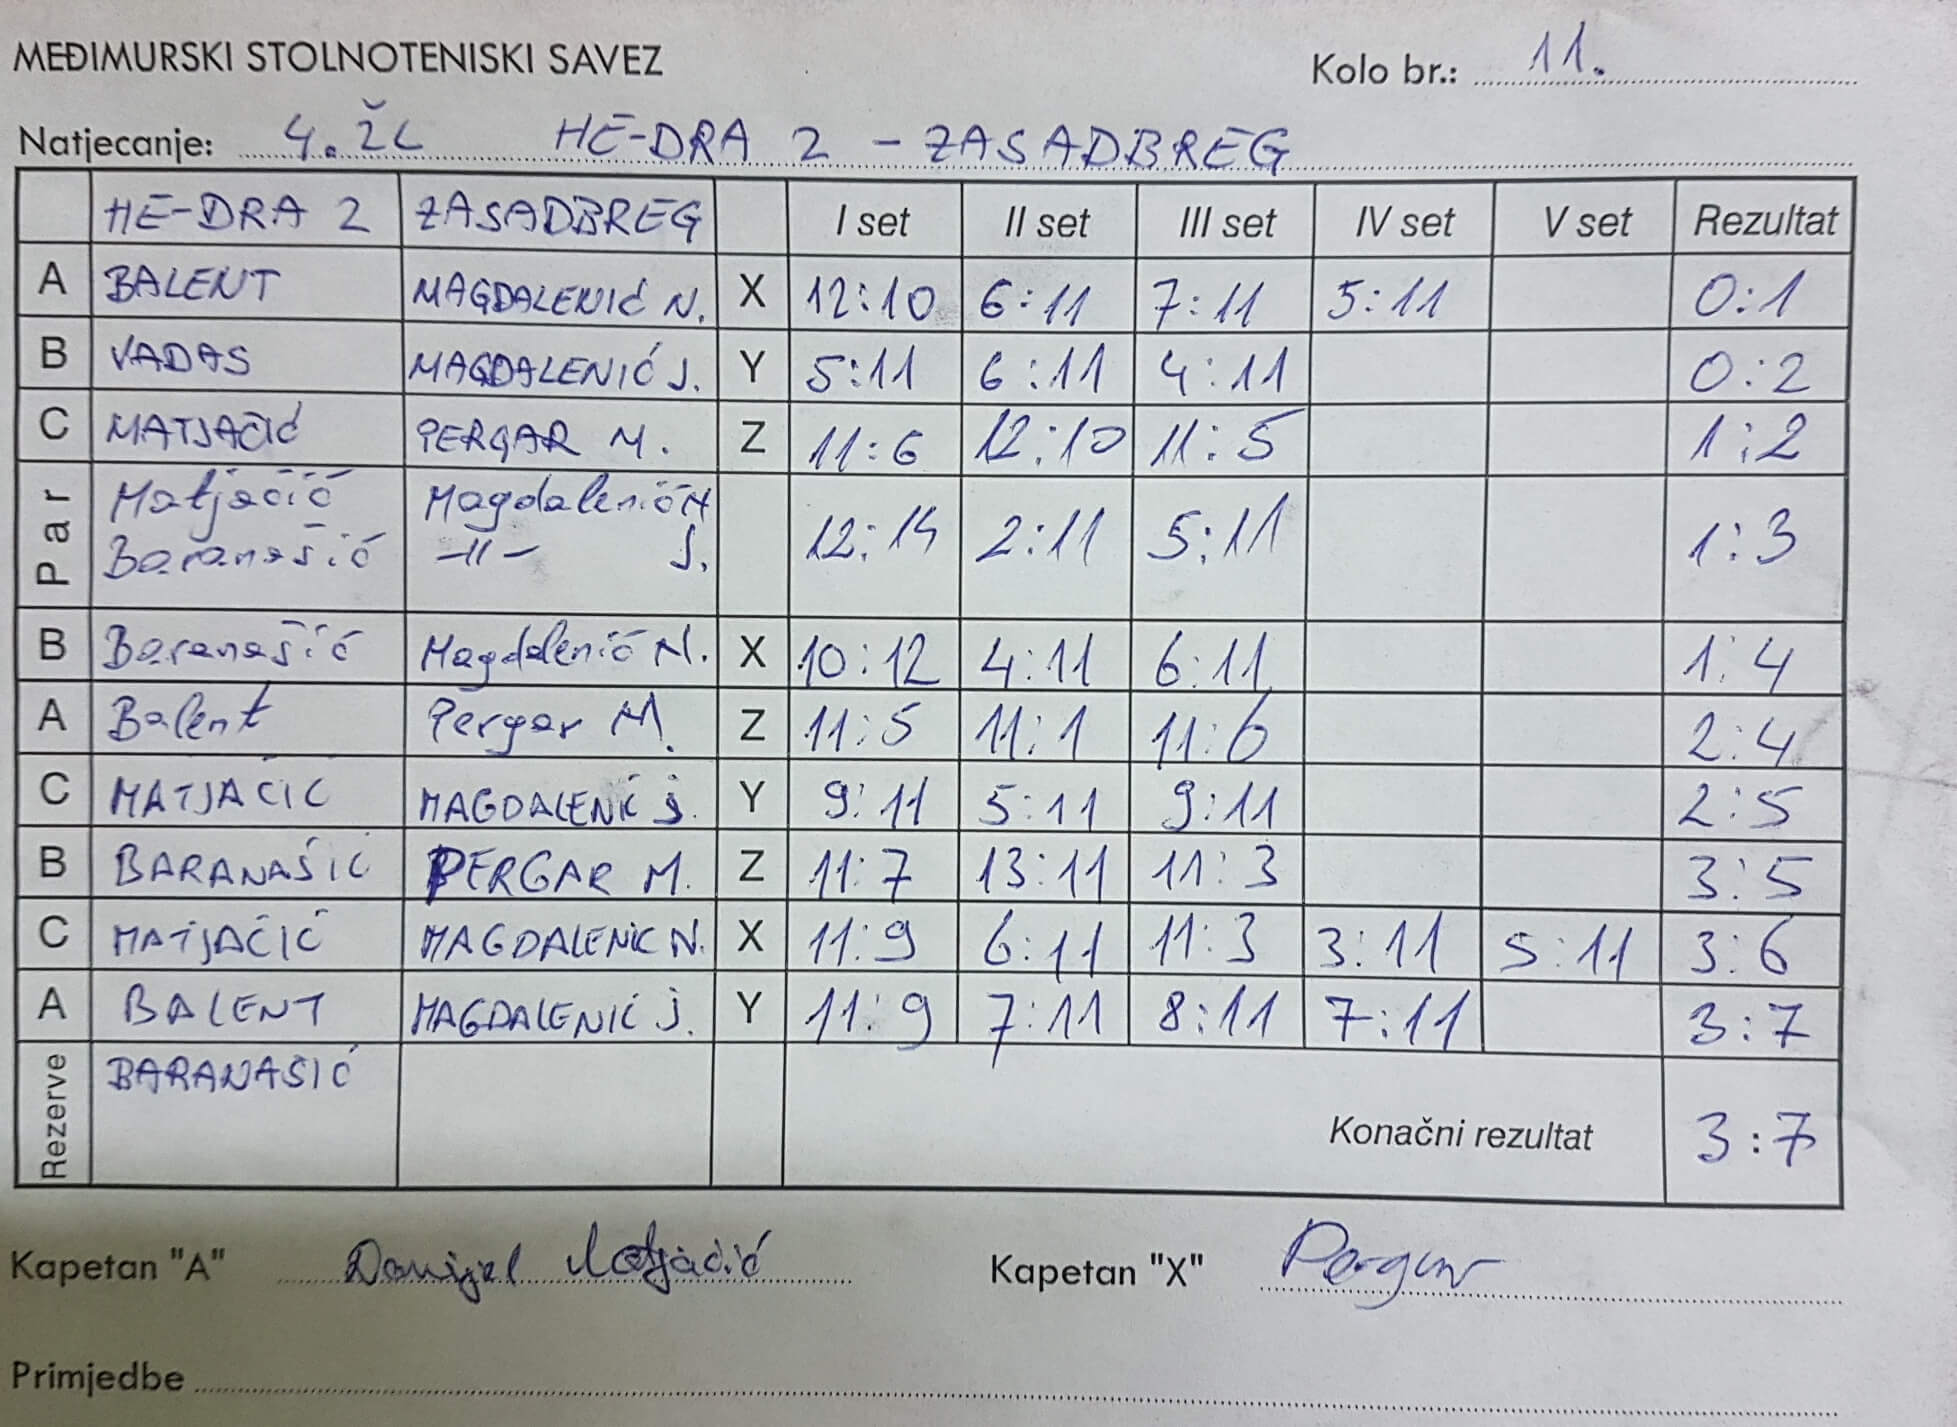 MEĐIMURSKI STOLNOTENISKI SAVEZ
Kolo br.: 11.
Natjecanje: 4. ŽL HE-DRA 2 - ZASADBREG
HE-DRA 2 ZASADBREG I set II set III set IV set V set Rezultat
A BALENT MAGDALENIĆ N. X 12:10 6:11 7:11 5:11 0:1
B VADAS MAGDALENIĆ J. Y 5:11 6:11 4:11 0:2
C MATJAČIĆ PERGAR M. Z 11:6 12:10 11:5 1:2
Par Matjačić Magdalenić N 12:14 2:11 5:11 1:3
Baranašić -11- J.
B Baranašić Magdalenić N. X 10:12 4:11 6:11 1:4
A Balent Pergar M. Z 11:5 11:1 11:6 2:4
C MATJAČIĆ MAGDALENIĆ J. Y 9:11 5:11 9:11 2:5
B BARANAŠIĆ PERGAR M. Z 11:7 13:11 11:3 3:5
C MATJAČIĆ MAGDALENIĆ N. X 11:9 6:11 11:3 3:11 5:11 3:6
A BALENT MAGDALENIĆ J. Y 11:9 7:11 8:11 7:11 3:7
Rezerve BARANAŠIĆ Konačni rezultat 3:7
Kapetan "A" Danijel Matjačić Kapetan "X" Pergar
Primjedbe